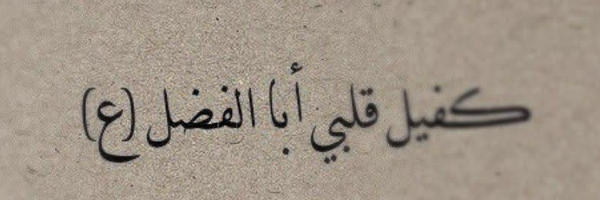 كفيل قلبي أبا الفضل (ع)